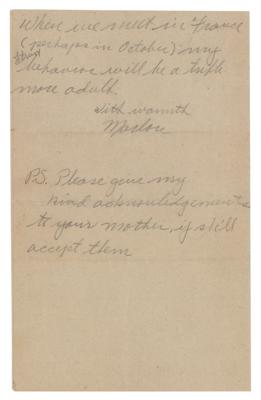 When we meet in France
(perhaps in October) my
trust
behavior will be a trifle
more adult.
With warmth
Marlon
P.S. Please give my
kind acknowledgements
to your mother, if still
accept them